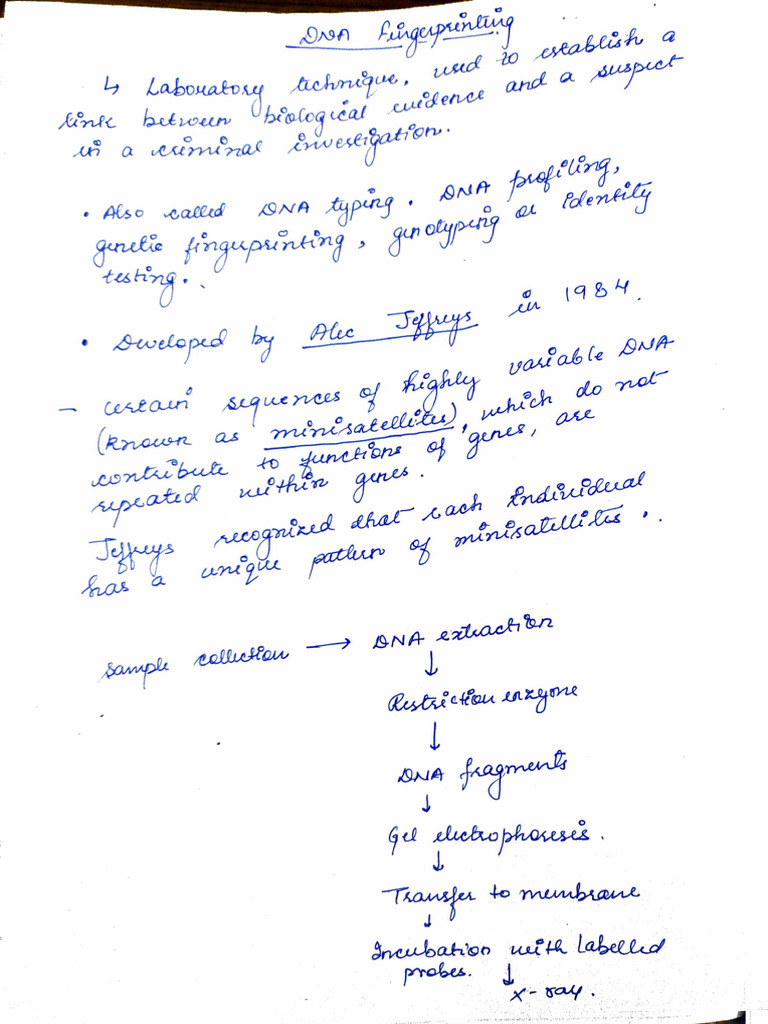 DNA Fingerprinting
↳ Laboratory technique, used to establish a
link between biological evidence and a suspect
in a criminal investigation.
• Also called DNA typing. DNA profiling,
genetic fingerprinting, genotyping or identity
testing.
• Developed by Alec Jeffreys in 1984.
– certain sequences of highly variable DNA
(known as minisatellites), which do not
contribute to functions of genes, are
repeated within genes.
Jeffreys recognized that each individual
has a unique pattern of minisatellites.
sample collection → DNA extraction
↓
Restriction enzyme
↓
DNA fragments
↓
Gel electrophoresis.
↓
Transfer to membrane
↓
Incubation with labelled
probes. ↓
X-ray.